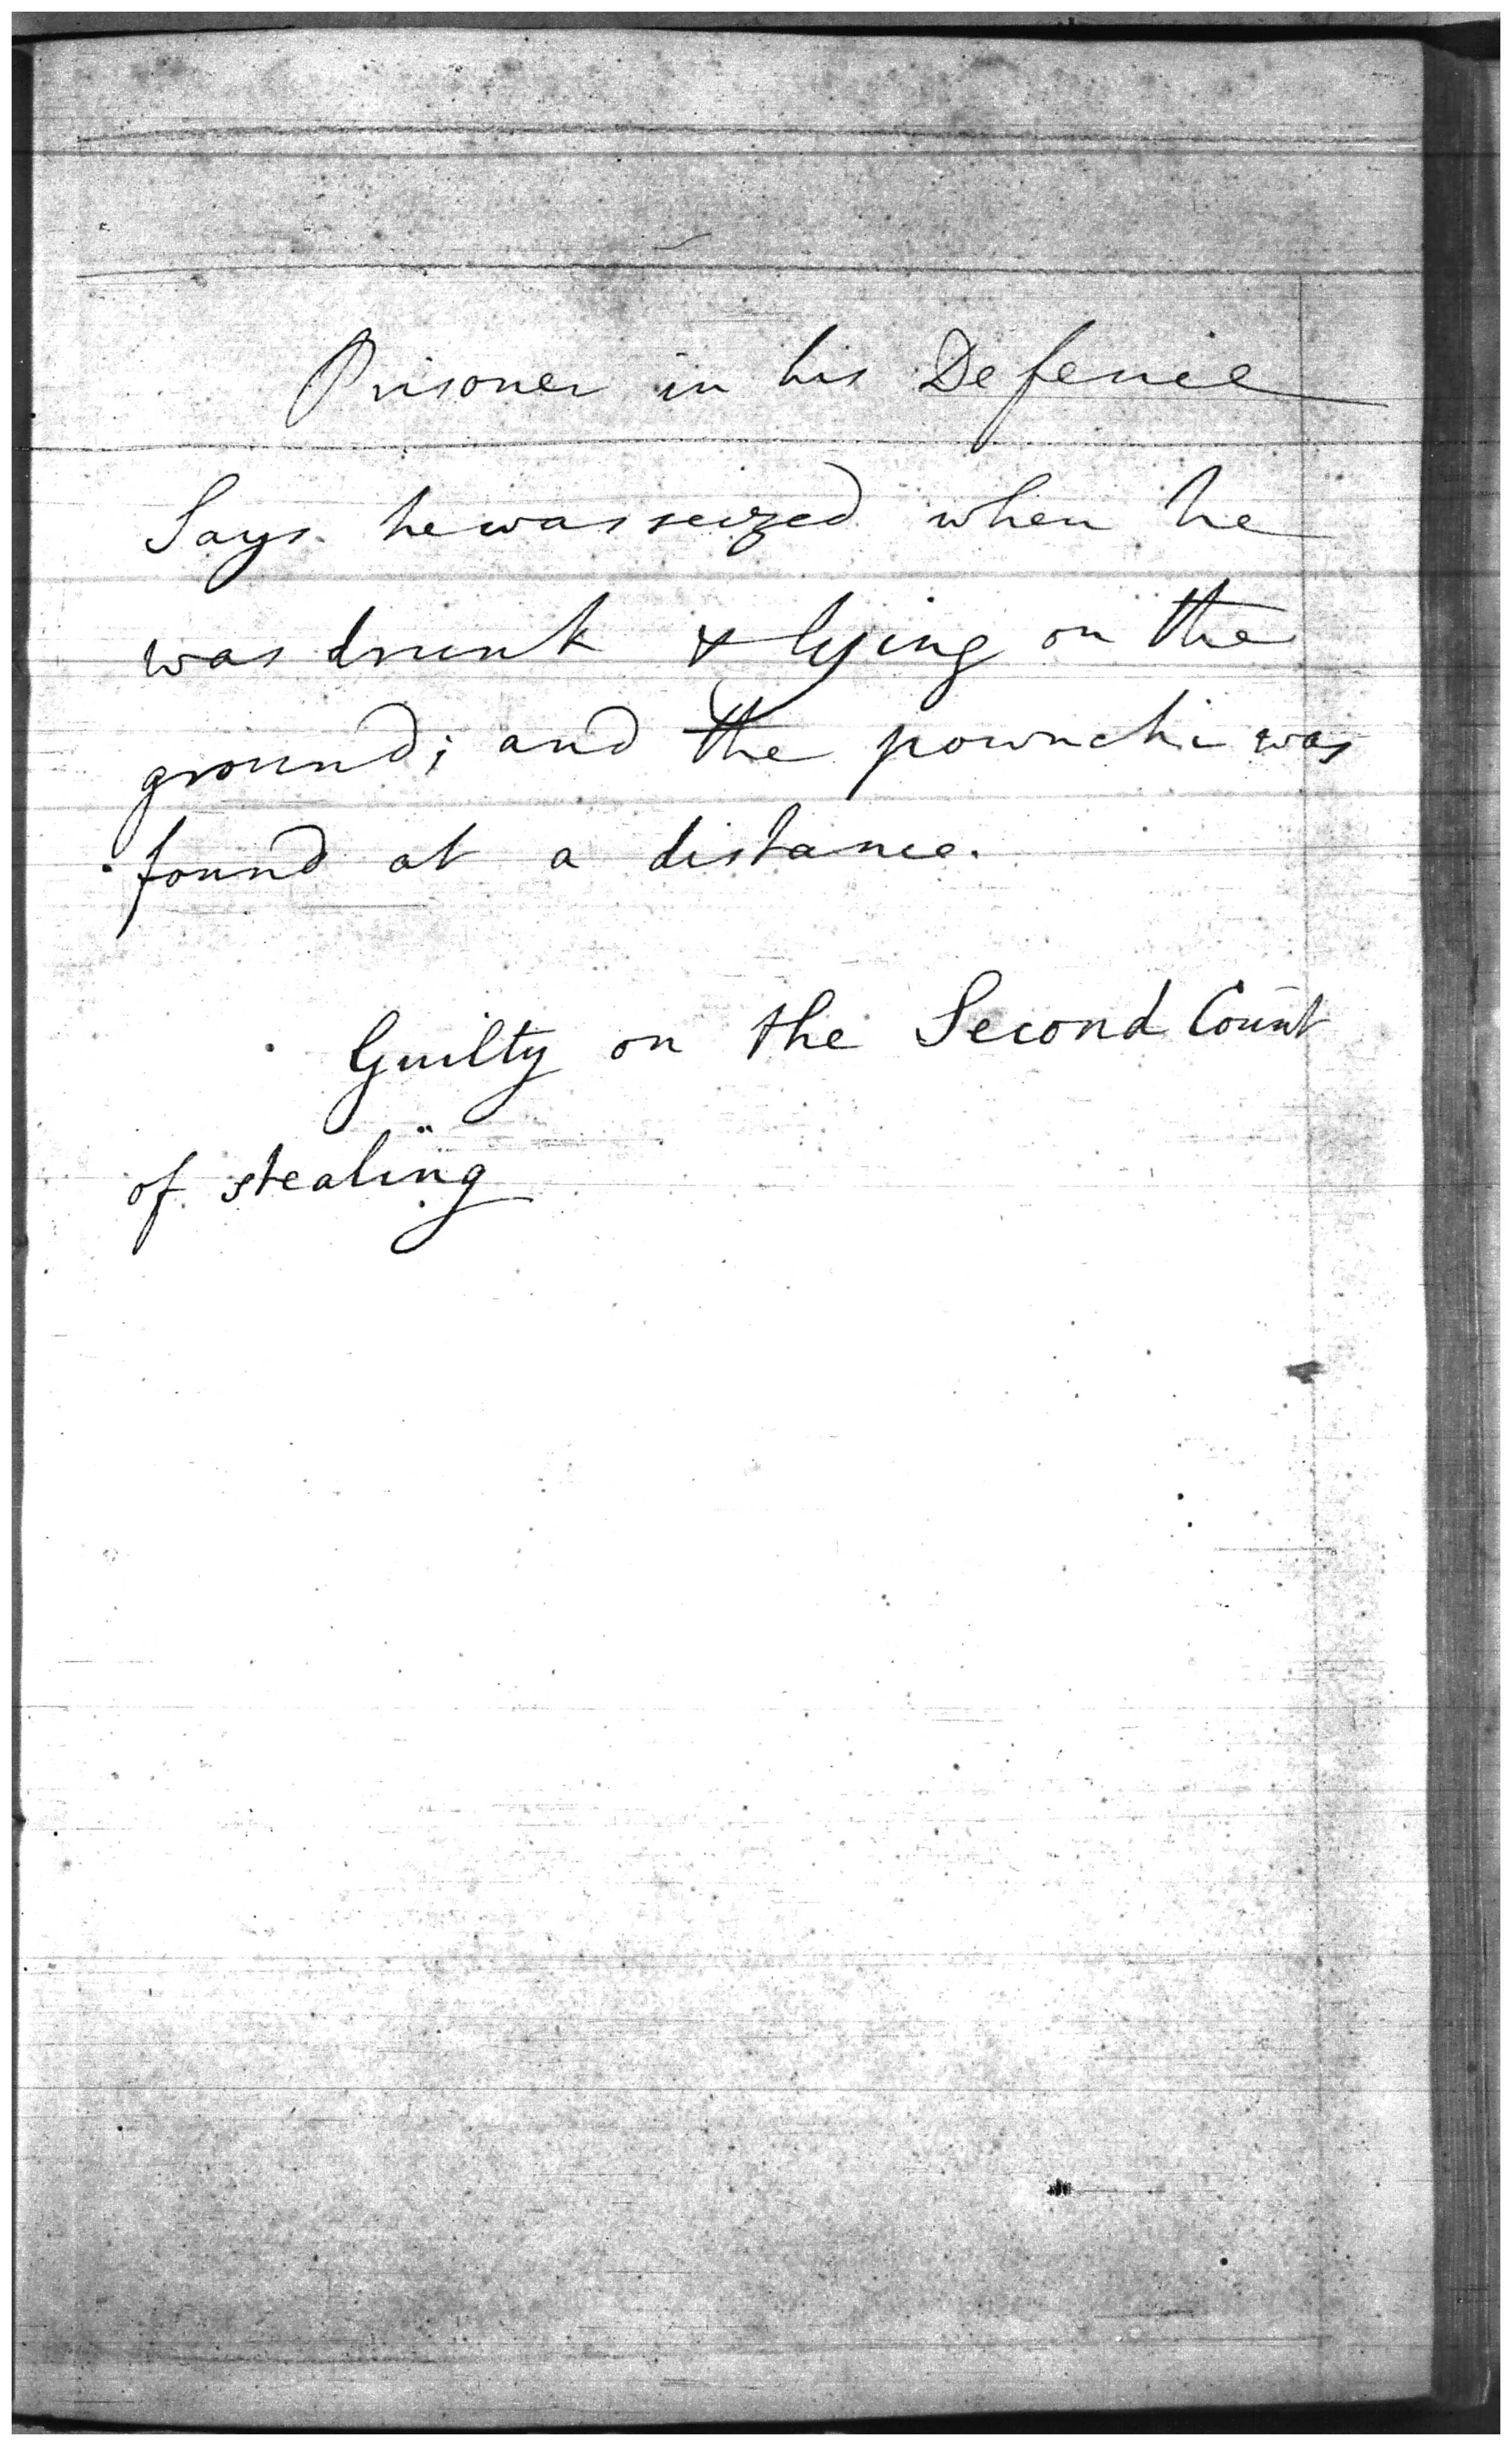 Prisoner in his Defence
Says he was seized when he
was drunk & lying on the
ground; and the pownchi was
found at a distance.
Guilty on the Second Count
of stealing